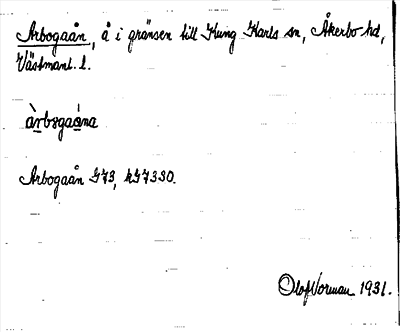 Arbogaån, å i gränsen till Kung Karls sn, Åkerbo hd,
Västmanl. l.
àrbogaána
Arbogaån G73, kG7330.
Olof Vorman 1931.